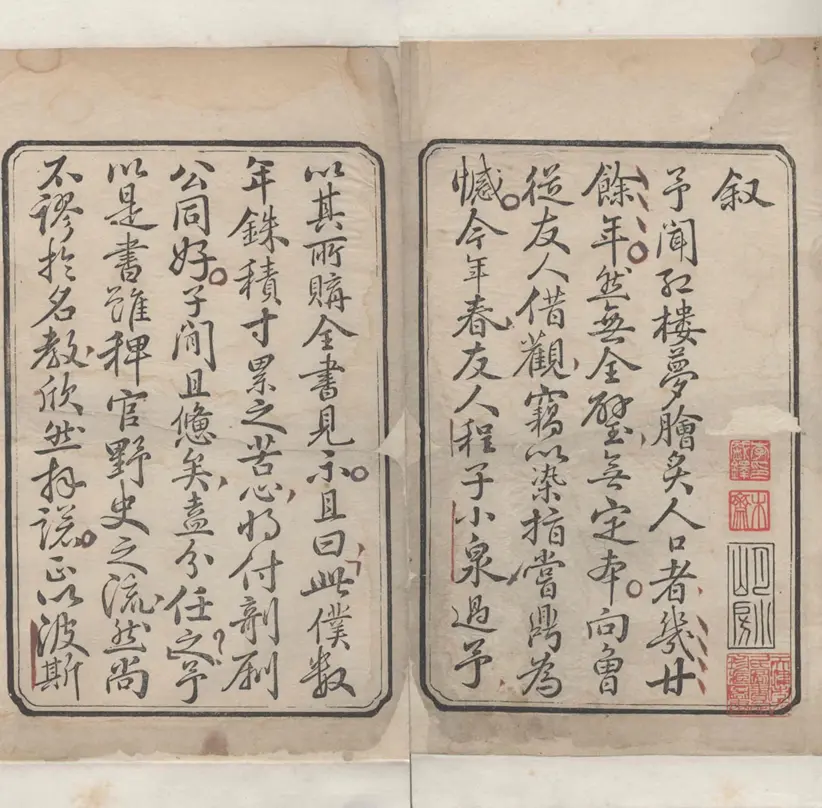 叙
予聞紅樓夢膾炙人口者幾廿
餘年然無全璧無定本向曾
從友人借觀竊以染指嘗鼎為
憾今年春友人程子小泉過予
以其所購全書見示且曰此僕數
年銖積寸累之苦心將付剞劂
公同好子閒且憊矣盍分任之予
以是書雖稗官野史之流然尚
不謬於名教欣然拜諾正以波斯